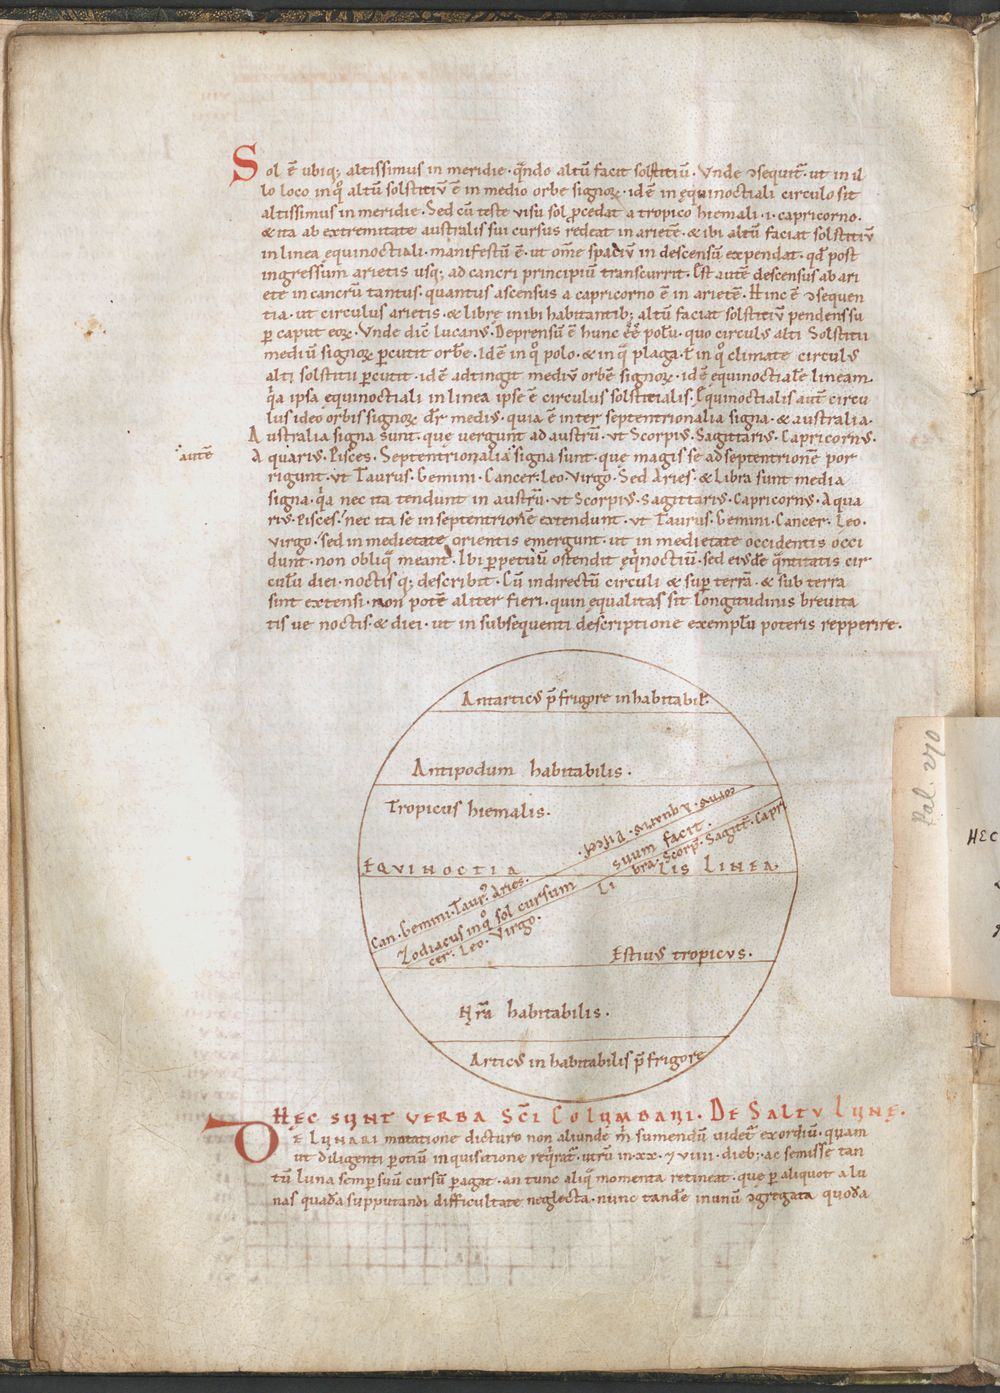 Sol ē ubiq; altissimus in meridie · q̄ndo altū facit solstitiū · Vnde ɔsequit̄ · ut in il
lo loco in qͦ altū solstitiū ē in medio orbe signoꝝ · idē in ęquinoctiali circulo sit
altissimus in meridie · Sed cū teste visu sol ꝓcedat a tropico hiemali · i · capricorno ·
& ita ab extremitate australis sui cursus redeat in arietē · & ibi altū faciat solstitiū
in linea equinoctiali · manifestū ē · ut om̄e spaciū in descensū expendat · qd̄ post
ingressum arietis usq; ad cancri principiū transcurrit · Est autē descensus ab ari
ete in cancrū tantus · quantus ascensus a capricorno ē in arietē · Hinc ē ɔsequen
tia · ut circulus arietis · & librę in ibi habitantib; altū faciat solstitiū pendens su
ꝑ caput eoꝝ · Vnde dic̄ lucanꝰ · Deprensū ē hunc ēē̄ polū · quo circulꝰ alti Solstitii
mediū signoꝝ ꝑcutit orbē · Idē in qͦ polo · & in q̄ plaga · ł in qͦ climate circulꝰ
alti solstitii ꝑcutit · idē adtingit mediū orbē signoꝝ · idē ęquinoctialē lineam ·
q̄a ipsa equinoctiali in linea ipse ē circulus solstitialis · Ęquinoctialis aut̄ circu
lus ideo orbis signoꝝ dr̄ mediꝰ · quia ē inter septentrionalia signa · & australia ·
Australia signa sunt · que vergunt ad austrū · vt Scorpiꝰ · Sagittariꝰ · Capricornꝰ ·
autē
Aquariꝰ · Pisces · Septentrionalia signa sunt · que magis se ad septentrionē por
rigunt · vt Taurus · Gemini · Cancer · Leo · Virgo · Sed Aries · & Libra sunt media
signa · q̄a nec ita tendunt in austrū · vt Scorpiꝰ · Sagittariꝰ · Capricornꝰ · Aqua
riꝰ · Pisces · nec ita se in septentrionē extendunt · vt Taurus · Gemini · Cancer · Leo ·
Virgo · sed in medietate orientis emergunt · ut in medietate occidentis occi
dunt · non obliq̄ meant · Ibi ꝑpetuū ostendit eq̄noctiū · sed eiꝰdē q̄ntitatis cir
culū diei · noctisq; describit · Cū in directū circuli & suꝑ terrā · & sub terra
sint extensi · non potē aliter fieri · quin ęqualitas sit longitudinis brevita
tis ve noctis · & diei · ut in subsequenti descriptione exemplū poteris repperire ·
Antarticꝰ p̄ frigore inhabitabil̄
Antipodum habitabilis ·
Tropicus hiemalis ·
cornꝰ · Aquariꝰ · Pisces ·
suum facit ·
bra · Scorpꝰ · Sagitt̄ · Capri
EQVINOCTIA
LIS LINEA ·
Li
Can · Gemini · Taurꝰ · Aries ·
Zodiacus in qͦ sol cursum
cer · Leo · Virgo ·
Estiuꝰ tropicvs ·
Nr̄a habitabilis ·
Articꝰ inhabitabilis p̄ frigore
HĘC SVNT VERBA SC̄I COLVMBANI · DE SALTV LVNĘ ·
DE LVNARI mutatione dicturo non aliunde m̄ sumendū videt̄ exordiū · quam
ut diligenti potiū inquisitione req̄rat̄ · utrū in · xx · ⁊ viiii · dieb; · ac semisse tan
tū luna semꝑ suū cursū ꝑagat · an tunc aliq̄ momenta retineat · que ꝑ aliquot a lu
nas quadā supputandi difficultate neglecta · nunc tandē in unū ɔgregata quodā
Pal. 270
HEC